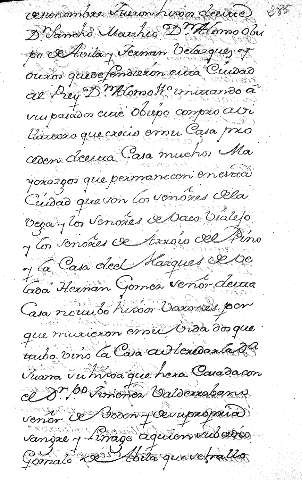 686
de su nombre fueron hijos de este
Dn Sancho Martin Dn Alonso Obis
po de Avila y Fernan Velazquez q
quienes defendieron esta Ciudad
al Rey Dn Alonso
sus pasados este obispo compro
que crecio en su Casa pro
ceden de esta Casa muchos Ma
yorazgos que permanecen en esta
Ciudad que son los señores de la
Vega y los señores de Baeo Vialejo
y los señores de Arroyo del Pino
y la Casa del Marques de Ve
lada Hernan Gomez señor de esta
Casa no tubo hijos Varones por
que murieron en su vida dos que
tubo vino la Casa a heredarla Da
Juana su hija que hera Casada con
el Dr Po Ximenez Valderrabano
señor de y de su propia
sangre y Linage a quien subcedio
Gonzalo de Abila que se hallo